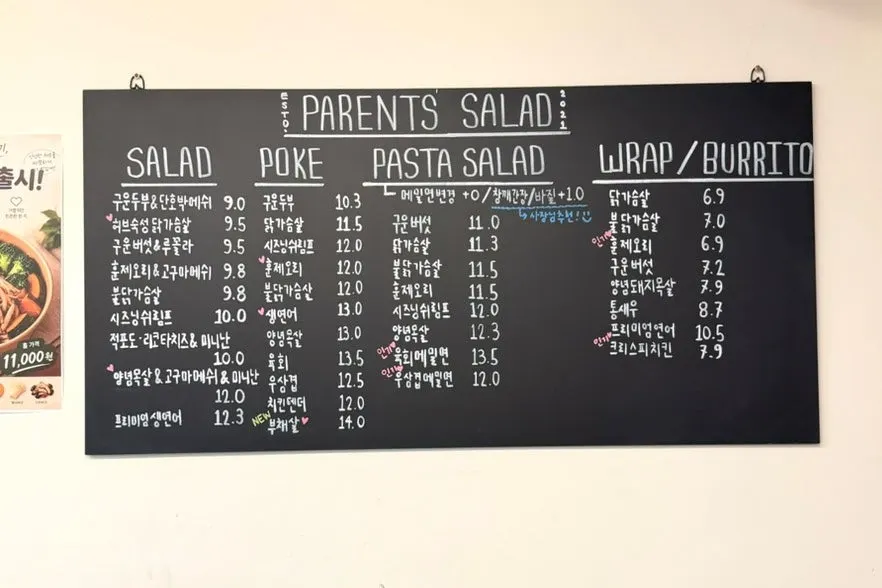 ESTD. PARENTS' SALAD 2021
SALAD
구운두부&단호박메쉬 9.0
허브숙성 닭가슴살 9.5
구운버섯&루꼴라 9.5
훈제오리&고구마메쉬 9.8
불닭가슴살 9.8
시즈닝쉬림프 10.0
적포도·리코타치즈& 미니난
10.0
양념목살&고구마메쉬 & 미니난
12.0
프리미엄생연어 12.3
POKE
구운두부 10.3
닭가슴살 11.5
시즈닝쉬림프 12.0
훈제오리 12.0
불닭가슴살 12.0
생연어 13.0
양념목살 13.0
육회 13.5
우삼겹 12.5
치킨텐더 12.0
NEW 부채살 14.0
PASTA SALAD
메밀면변경 +0 / 참깨간장/바질 +1.0
사장님추천!
구운버섯 11.0
닭가슴살 11.3
불닭가슴살 11.5
훈제오리 11.5
시즈닝쉬림프 12.0
양념목살 12.3
인기 육회메밀면 13.5
인기 우삼겹메밀면 12.0
WRAP / BURRITO
닭가슴살 6.9
불닭가슴살 7.0
인기 훈제오리 6.9
구운버섯 7.2
양념돼지목살 7.9
통새우 8.7
인기 프리미엄연어 10.5
크리스피치킨 7.9
출시!
11,000원